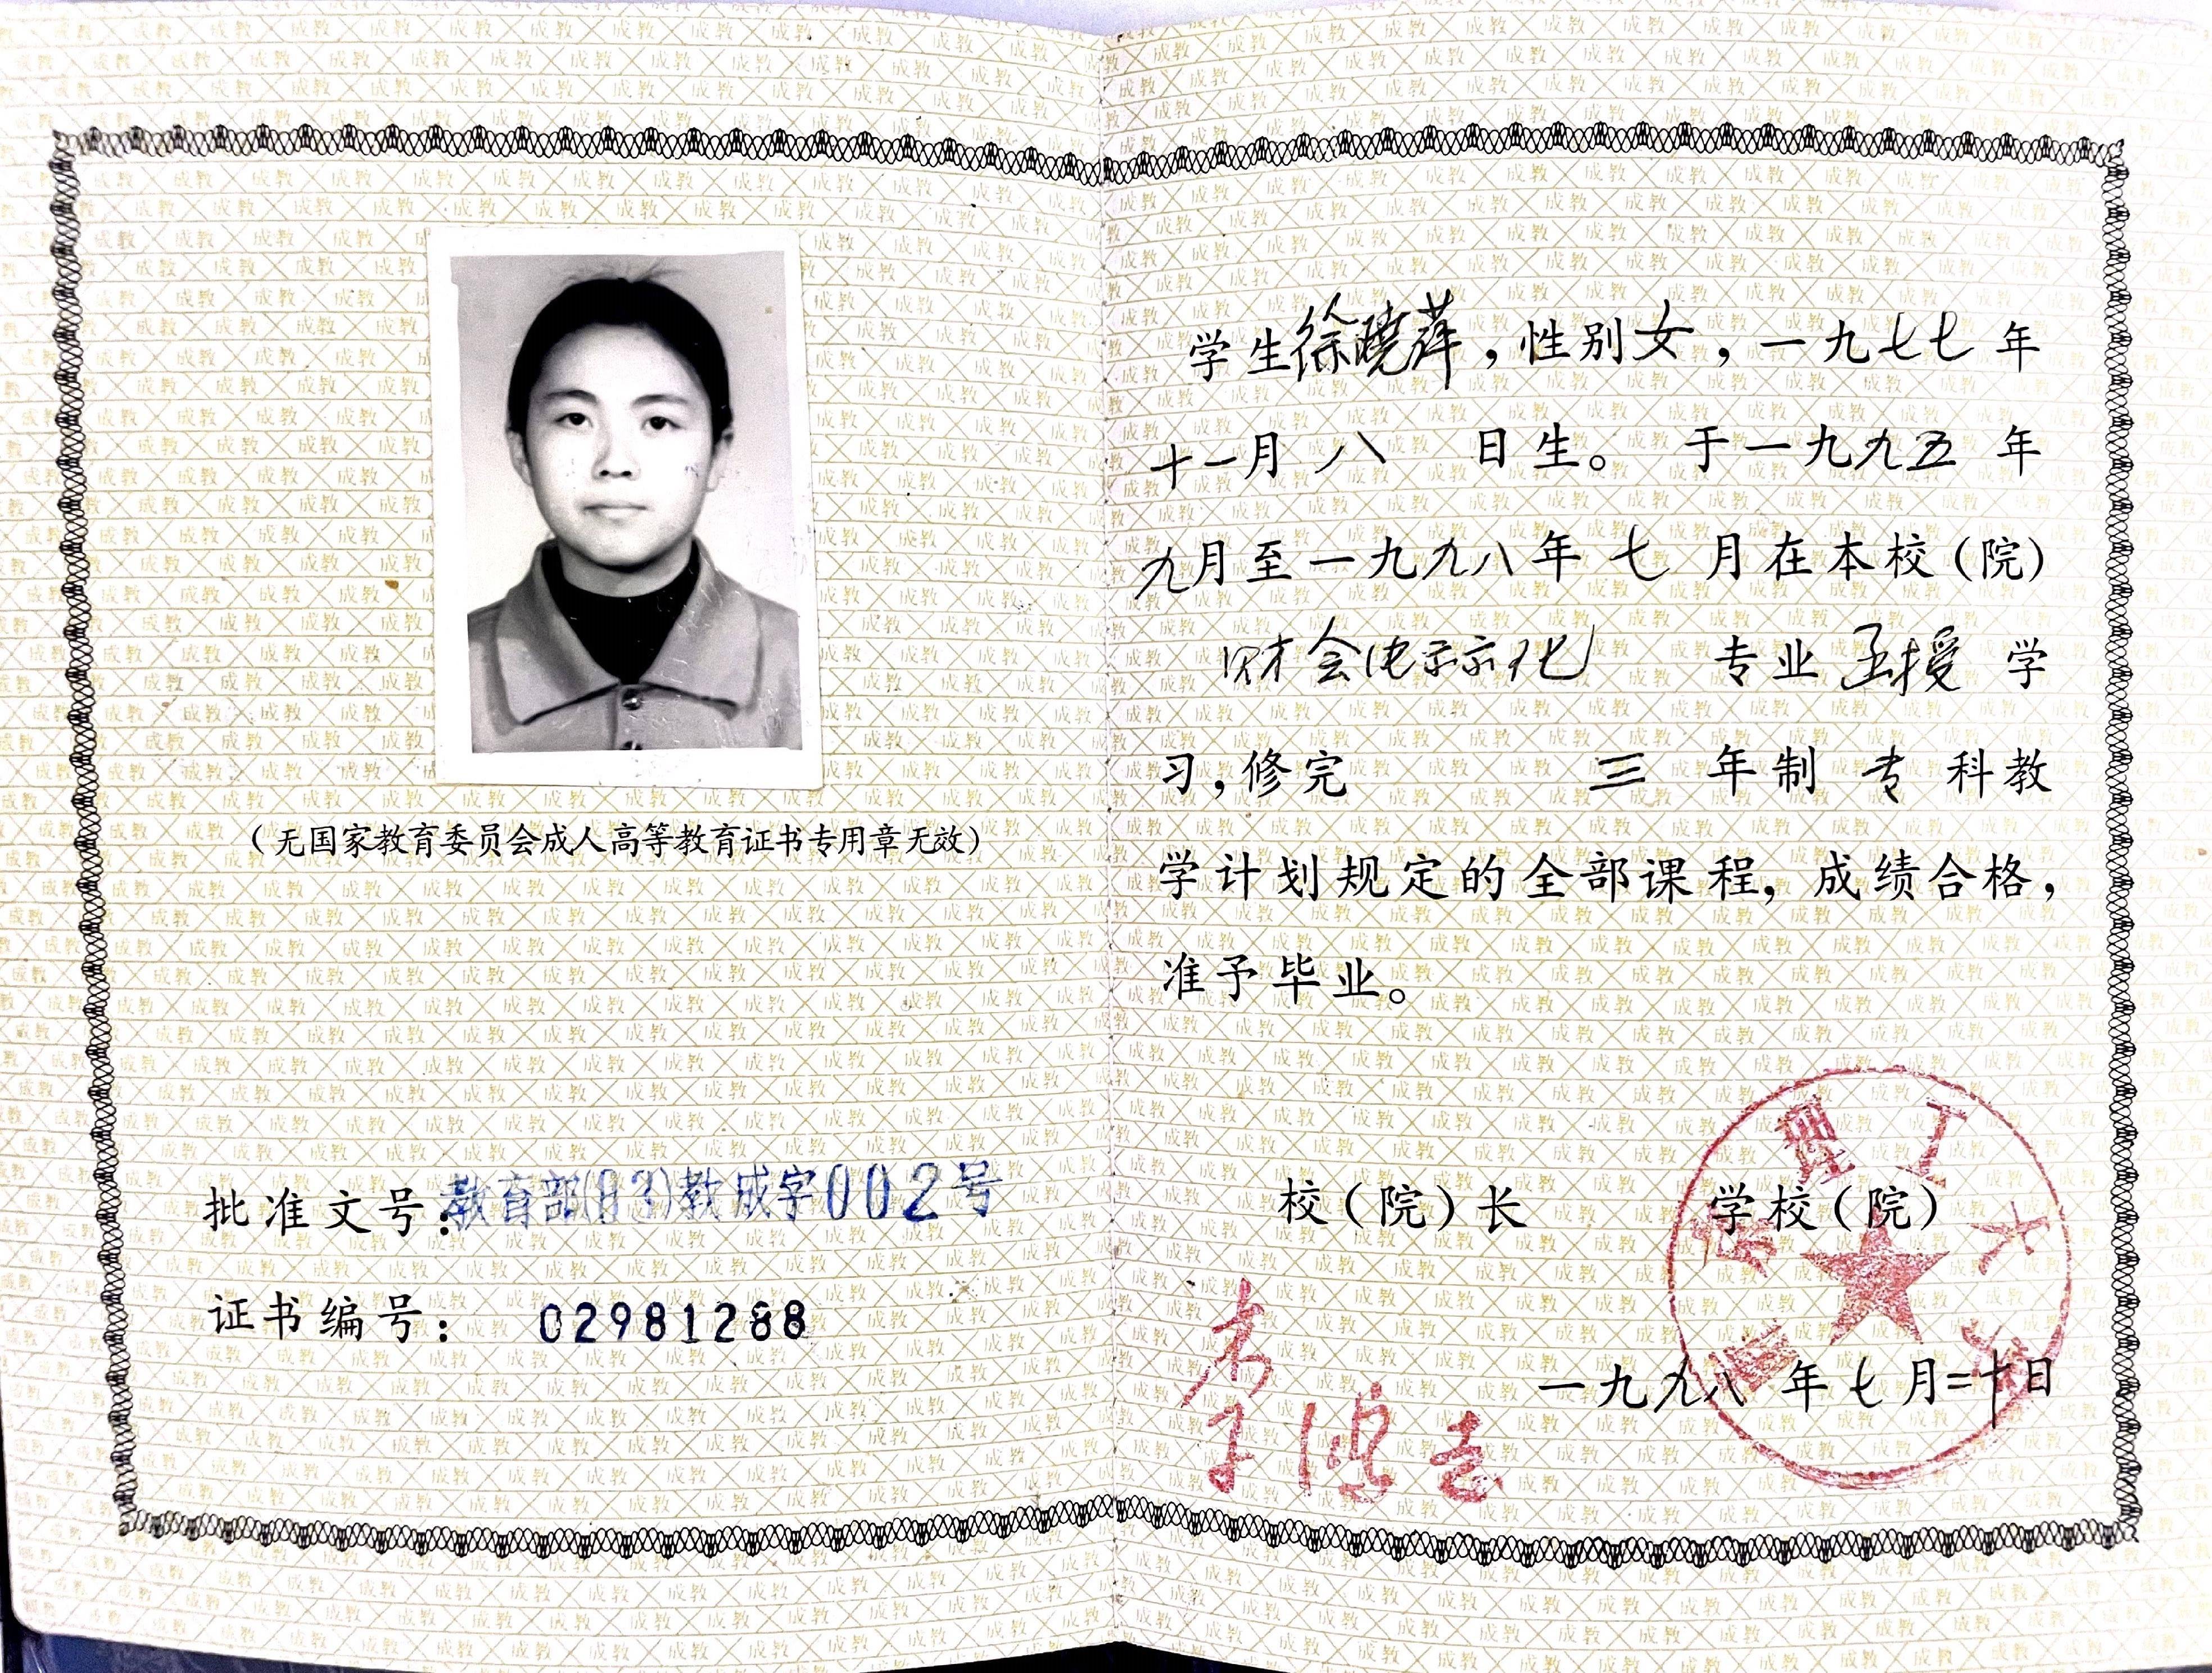 （无国家教育委员会成人高等教育证书专用章无效）
批准文号：教育部(83)教成字002号
证书编号： 02981288
学生徐晓萍，性别女，一九七七年
十一月 八 日生。 于一九九五 年
九月至一九九八年 七 月在本校（院）
财会电算化 专业 函授 学
习，修完 三 年制 专 科教
学计划规定的全部课程，成绩合格，
准予毕业。
校（院）长 学校（院）
理工大
一九九八 年七月二十日